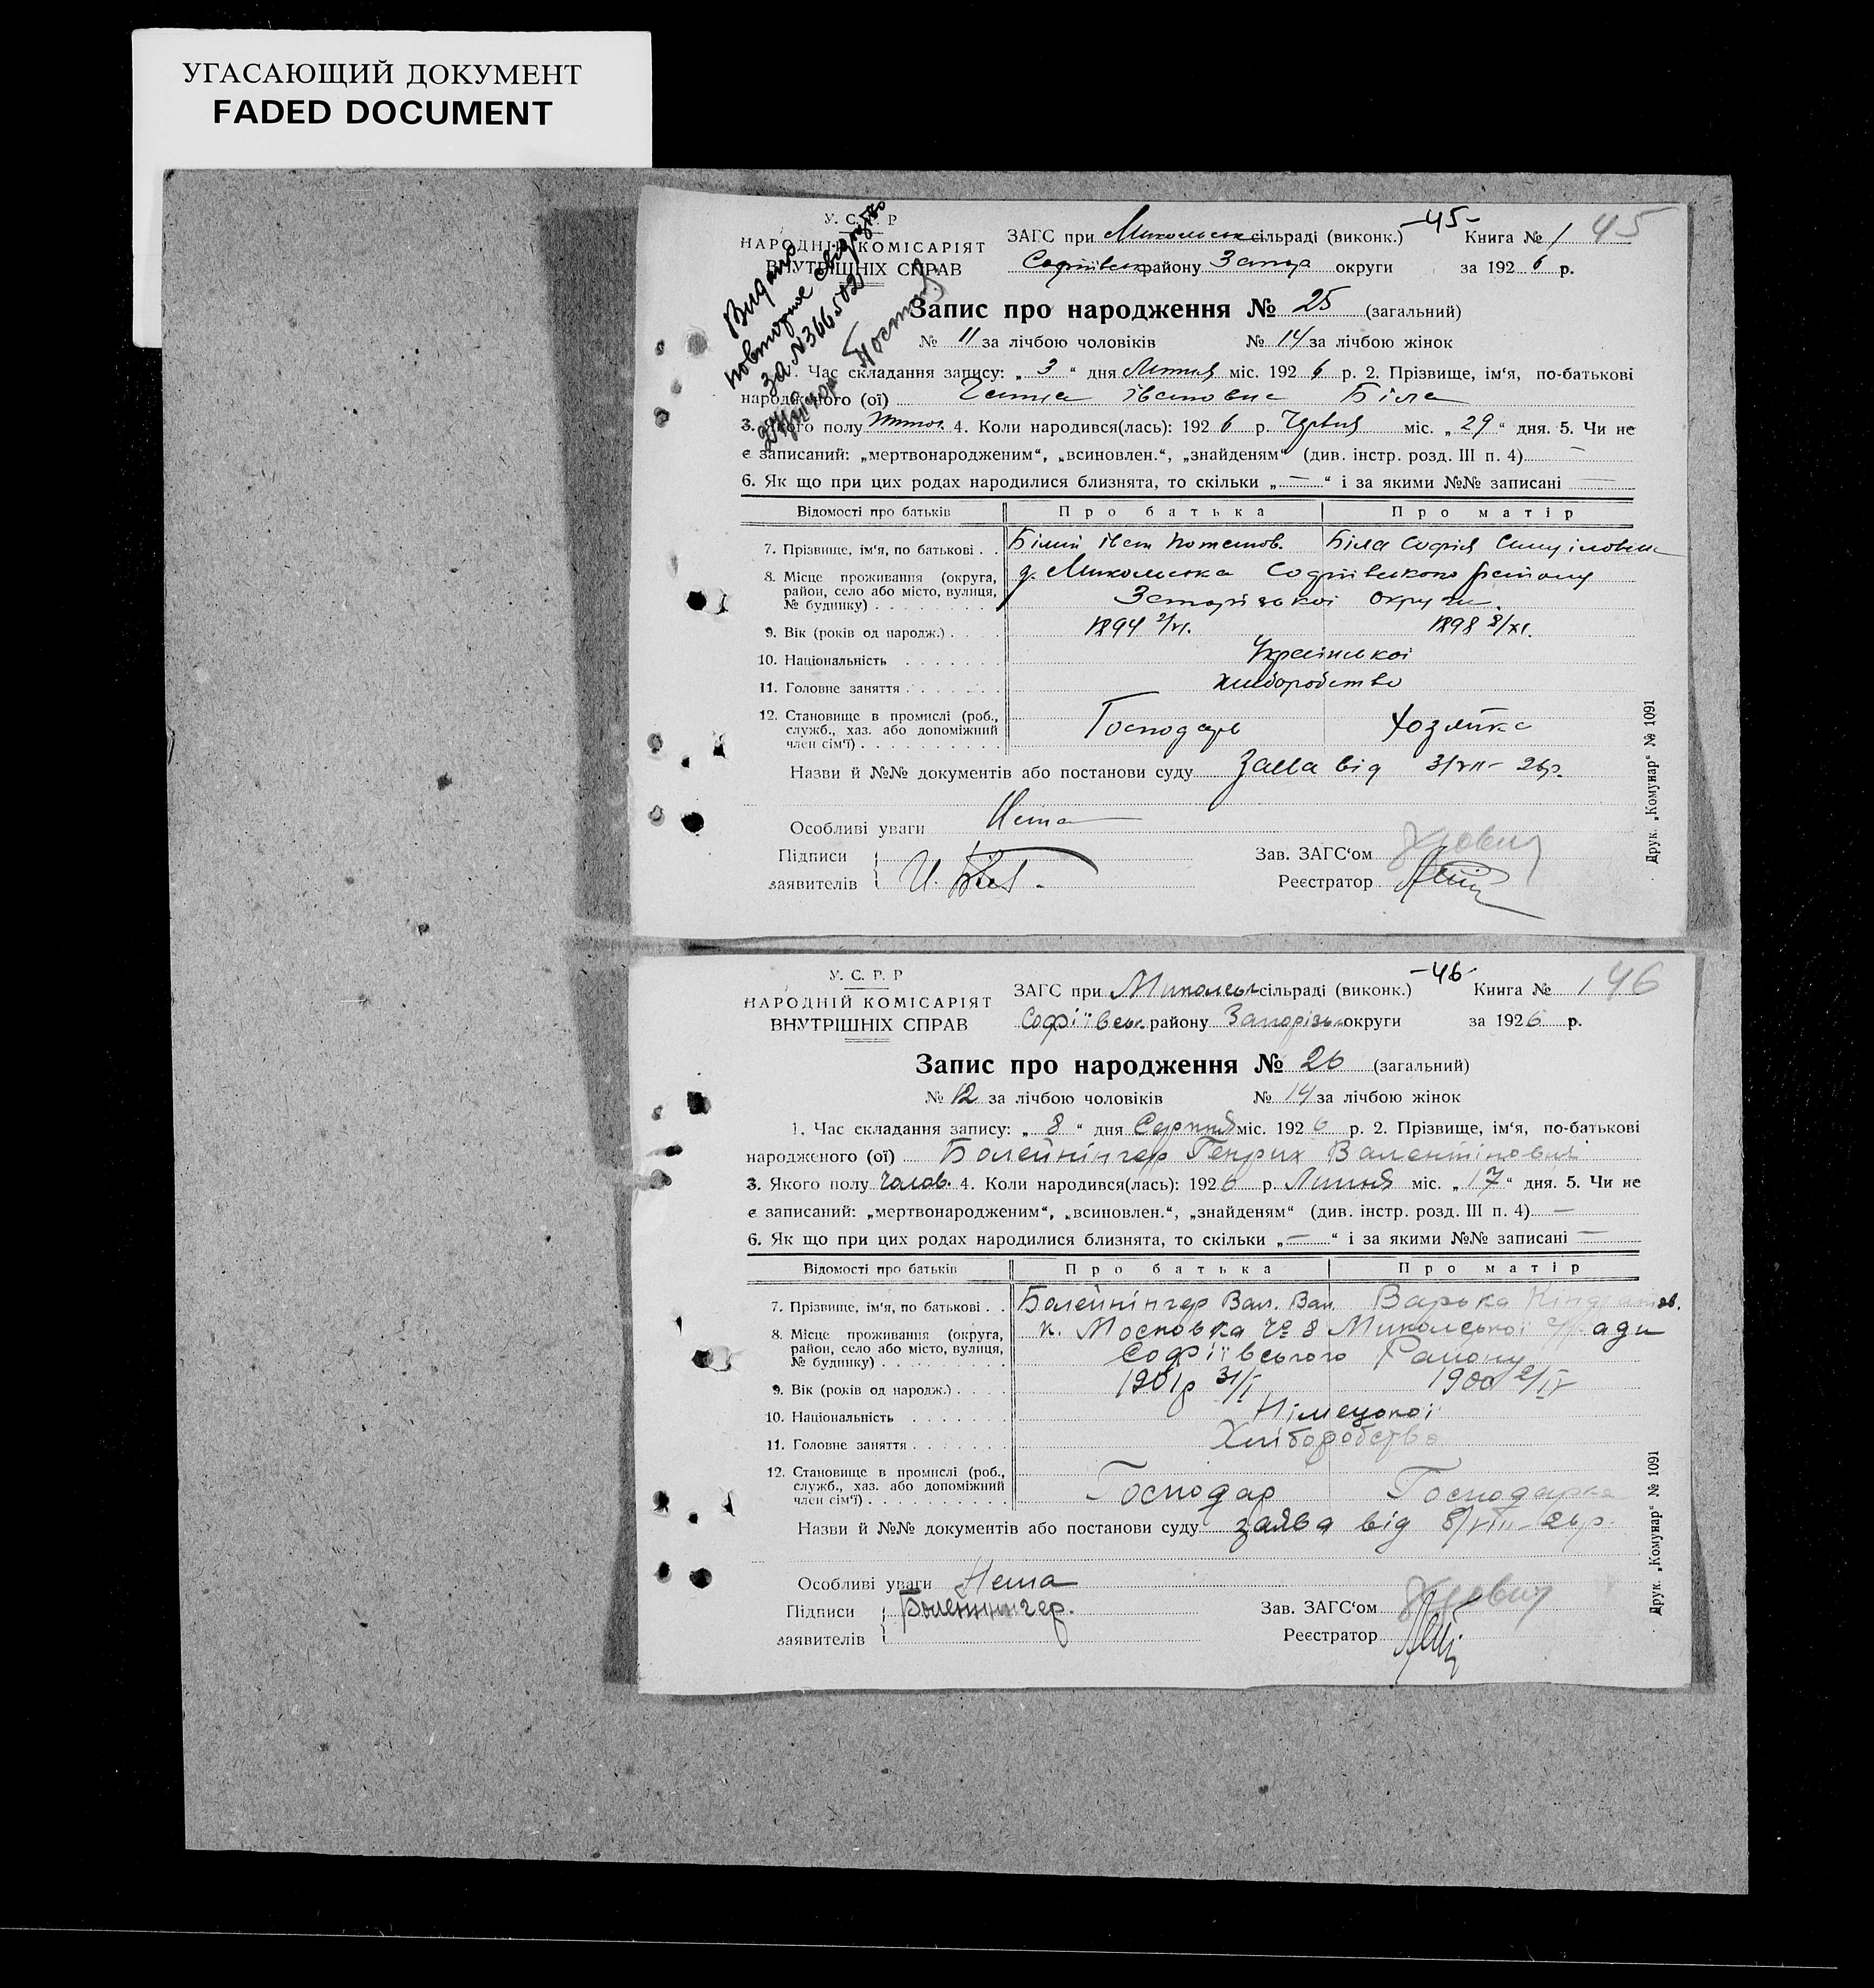 УГАСАЮЩИЙ ДОКУМЕНТ
FADED DOCUMENT
У. С. Р. Р
НАРОДНІЙ КОМІСАРІЯТ
ВНУТРІШНІХ СПРАВ
Видано
повторное свидет
за № 366502
ЗАГС при Микольськ сільраді (виконк.) -45- Книга № 1 45
Софіївськ району Запор округи за 1926 р.
Запис про народження № 25 (загальний)
№ 11 за лічбою чоловіків № 14 за лічбою жінок
1. Час складання запису: „ 3 “ дня Липня міс. 1926 р. 2. Прізвище, ім‘я, по-батькові
народженого (ої) Ганна Івановна Біла
3. Якого полу жіноч. 4. Коли народився(лась): 1926 р. Червня міс. „ 29 “ дня. 5. Чи не
є записаний: „мертвонародженим“, „всиновлен.“, „знайденям“ (див. інстр. розд. III п. 4) —
6. Як що при цих родах народилися близнята, то скільки „ — “ і за якими №№ записані —
Відомості про батьків Про батька Про матір
7. Прізвище, ім‘я, по батькові . . Білий Іван Потапов. Біла Софія
8. Місце проживання (округа, д. Микольська Софіївського району
район, село або місто, вулиця, Запорізької округи.
№ будинку) . . . . . . . . . .
9. Вік (років од народж.) . . . . 1894 1898 8/XI.
10. Національність . . . . . . . Української
11. Головне заняття . . . . . . . хліборобство
12. Становище в промислі (роб., Господарь Хозяйка
служб., хаз. або допоміжний
член сім‘ї) . . . . . . . . . .
Назви й №№ документів або постанови суду Заява від 3/VII - 26р.
Особливі уваги Нема
Підписи Зав. ЗАГС‘ом
заявителів И. Бѣл. Реєстратор
Друк. „Комунар“ № 1091
У. С. Р. Р
НАРОДНІЙ КОМІСАРІЯТ
ВНУТРІШНІХ СПРАВ
ЗАГС при Микольськ сільраді (виконк.) -46- Книга № 1 46
Софіївськ. району Запорізьк округи за 1926 р.
Запис про народження № 26 (загальний)
№ 12 за лічбою чоловіків № 14 за лічбою жінок
1. Час складання запису: „ 8 “ дня Серпня міс. 1926 р. 2. Прізвище, ім‘я, по-батькові
народженого (ої) Болейнінгер Генрих Валентінович
3. Якого полу чолов. 4. Коли народився(лась): 1926 р. Липня міс. „ 17 “ дня. 5. Чи не
є записаний: „мертвонародженим“, „всиновлен.“, „знайденям“ (див. інстр. розд. III п. 4) —
6. Як що при цих родах народилися близнята, то скільки „ — “ і за якими №№ записані —
Відомості про батьків Про батька Про матір
7. Прізвище, ім‘я, по батькові . . Болейнінгер Вал. Вал. Варька Кіндратов.
8. Місце проживання (округа, к. Московка № 8 Микольської с/ради
район, село або місто, вулиця, Софіївського Району
№ будинку) . . . . . . . . . .
9. Вік (років од народж.) . . . . 1901р 31/I 1900 2/IV
10. Національність . . . . . . . Німецької
11. Головне заняття . . . . . . . Хліборобство
12. Становище в промислі (роб., Господар Господарка
служб., хаз. або допоміжний
член сім‘ї) . . . . . . . . . .
Назви й №№ документів або постанови суду заява від 8/VIII - 26р.
Особливі уваги Нема
Підписи Болейнингер. Зав. ЗАГС‘ом
заявителів Реєстратор
Друк. „Комунар“ № 1091